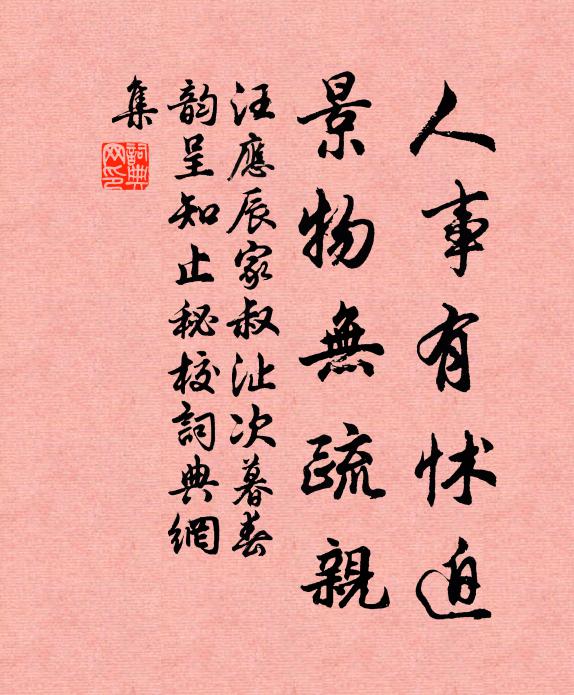 人事有怵迫
景物無疏親
汪應辰家叔沚次暮春
韵呈知止秘校詞典網
集
詞典網印